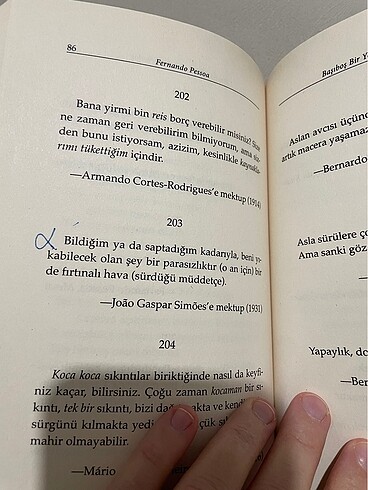 86
Fernando Pessoa
202
Bana yirmi bin reis borç verebilir misiniz? Size
ne zaman geri verebilirim bilmiyorum, ama siz-
den bunu istiyorsam, azizim, kesinlikle kaynakla-
rımı tükettiğim içindir.
—Armando Cortes-Rodrigues'e mektup (1914)
203
Bildiğim ya da saptadığım kadarıyla, beni yı-
kabilecek olan şey bir parasızlıktır (o an için) bir
de fırtınalı hava (sürdüğü müddetçe).
—João Gaspar Simões'e mektup (1931)
204
Koca koca sıkıntılar biriktiğinde nasıl da keyfi-
niz kaçar, bilirsiniz. Çoğu zaman kocaman bir sı-
kıntı, tek bir sıkıntı, bizi
sürgünü kılmakta
mahir olmayabilir.
—Mário
Başıboş Bir
Aslan avcısı
artık macera
—Bernardo
Asla sürülere
Ama sanki göz
Yapaylık,